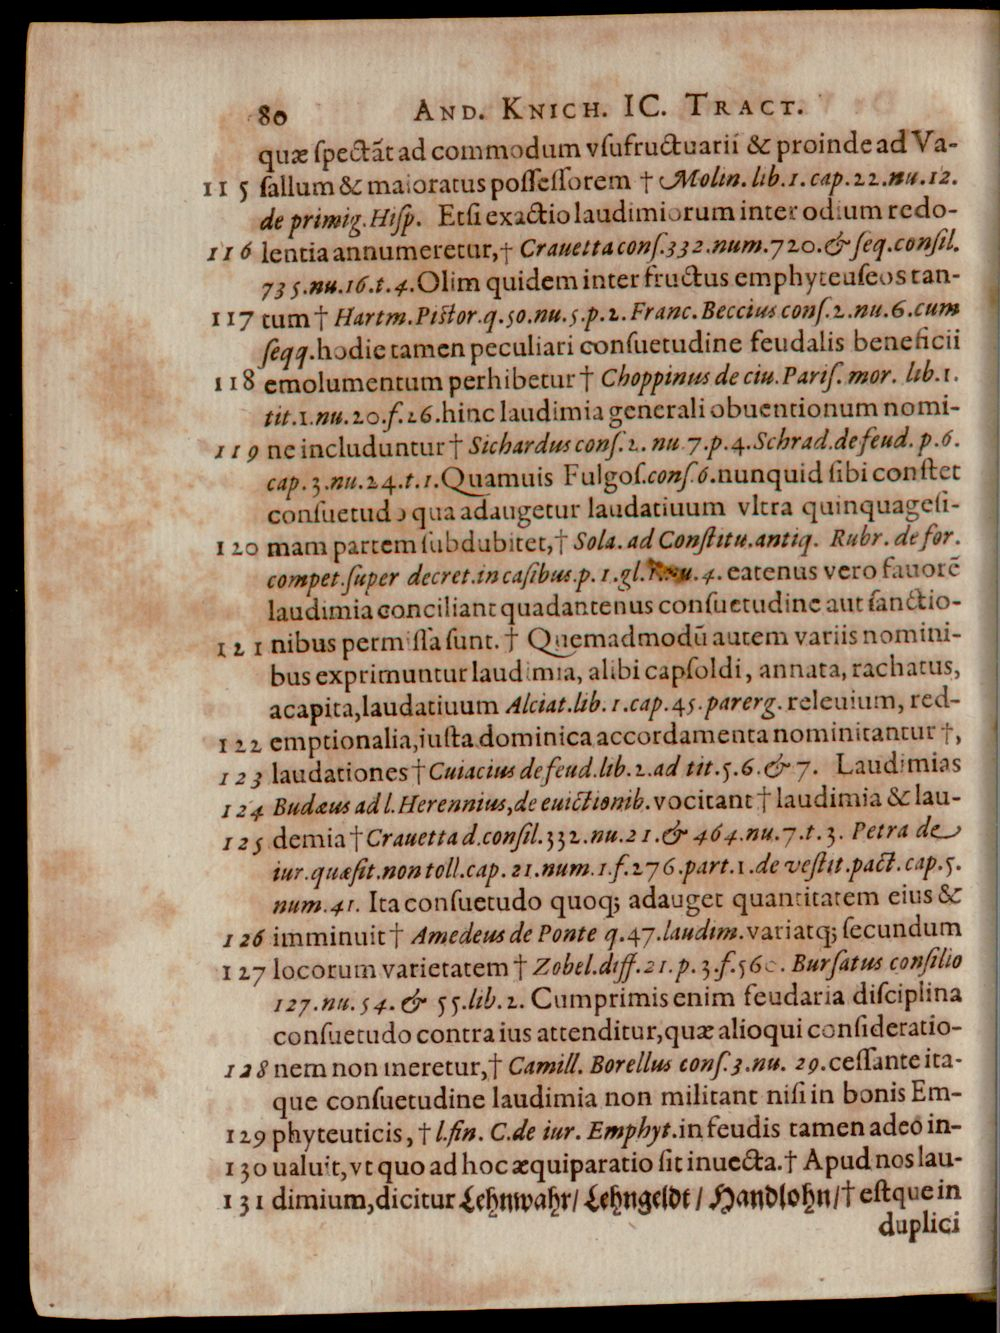 80 AND. KNICH. IC. TRACT.
quæ ſpectãt ad commodum vſufructuarii & proinde ad Va-
115 ſallum & maioratus poſſeſſorem † Molin. lib. 1. cap. 22. nu. 12.
de primig. Hiſp. Etſi exactio laudimiorum inter odium redo-
116 lentia annumeretur, † Crauetta conſ. 332. num. 720. & ſeq. conſil.
735. nu. 16. t. 4. Olim quidem inter fructus emphyteuſeos tan-
117 tum † Hartm. Piſtor. q. 50. nu. 5. p. 2. Franc. Beccius conſ. 2. nu. 6. cum
ſeqq. hodie tamen peculiari conſuetudine feudalis beneficii
118 emolumentum perhibetur † Choppinus de ciu. Pariſ. mor. lib. 1.
tit. 1. nu. 20. f. 26. hinc laudimia generali obuentionum nomi-
119 ne includuntur † Sichardus conſ. 2. nu 7. p. 4. Schrad. de feud. p. 6.
cap. 3. nu. 24. t. 1. Quamuis Fulgoſ. conſ. 6. nunquid ſibi conſtet
conſuetudo qua adaugetur laudatiuum vltra quinquageſi-
120 mam partem ſubdubitet, † Sola. ad Conſtitu. antiq. Rubr. de for.
compet. ſuper decret. in caſibus. p. 1. gl. 4. eatenus vero fauorẽ
laudimia conciliant quadantenus conſuetudine aut ſanctio-
121 nibus permiſſa ſunt. † Quemadmodũ autem variis nomini-
bus exprimuntur laudimia, alibi capſoldi, annata, rachatus,
acapita, laudatiuum Alciat. lib. 1. cap. 45. parerg. releuium, red-
122 emptionalia, iuſta dominica accordamenta nominitantur †,
123 laudationes † Cuiacius de feud. lib. 2. ad tit. 5. 6. & 7. Laudimias
124 Budæus ad l. Herennius, de euictionib. vocitant † laudimia & lau-
125 demia † Crauetta d. conſil. 332. nu. 21. & 464. nu. 7. t. 3. Petra de
iur. quæſit. non toll. cap. 21. num. 1. f. 276. part. 1. de veſtit. pact. cap. 5.
num. 41. Ita conſuetudo quoq; adauget quantitatem eius &
126 imminuit † Amedeus de Ponte q. 47. laudim. variatq; ſecundum
127 locorum varietatem † Zobel. diff. 21. p. 3. f. 560. Burſatus conſilio
127. nu. 54. & 55. lib. 2. Cumprimis enim feudaria diſciplina
conſuetudo contra ius attenditur, quæ alioqui conſideratio-
128 nem non meretur, † Camill. Borellus conſ. 3. nu. 29. ceſſante ita-
que conſuetudine laudimia non militant niſi in bonis Em-
129 phyteuticis, † l. fin. C. de iur. Emphyt. in feudis tamen adeo in-
130 ualuit, vt quo ad hoc æquiparatio ſit inuecta. † Apud nos lau-
131 dimium, dicitur Lehnwahr/ Lehngeldt/ Handlohn/ † eſtque in
duplici